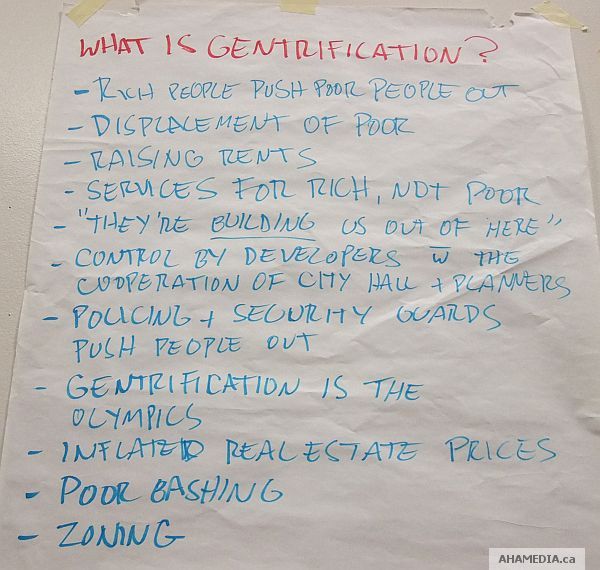 WHAT IS GENTRIFICATION?
- RICH PEOPLE PUSH POOR PEOPLE OUT
- DISPLACEMENT OF POOR
- RAISING RENTS
- SERVICES FOR RICH, NOT POOR
- "THEY'RE BUILDING US OUT OF HERE"
- CONTROL BY DEVELOPERS w̅ THE
COOPERATION OF CITY HALL + PLANNERS
- POLICING + SECURITY GUARDS
PUSH PEOPLE OUT
- GENTRIFICATION IS THE
OLYMPICS
- INFLATED REAL ESTATE PRICES
- POOR BASHING
- ZONING
AHAMEDIA.ca